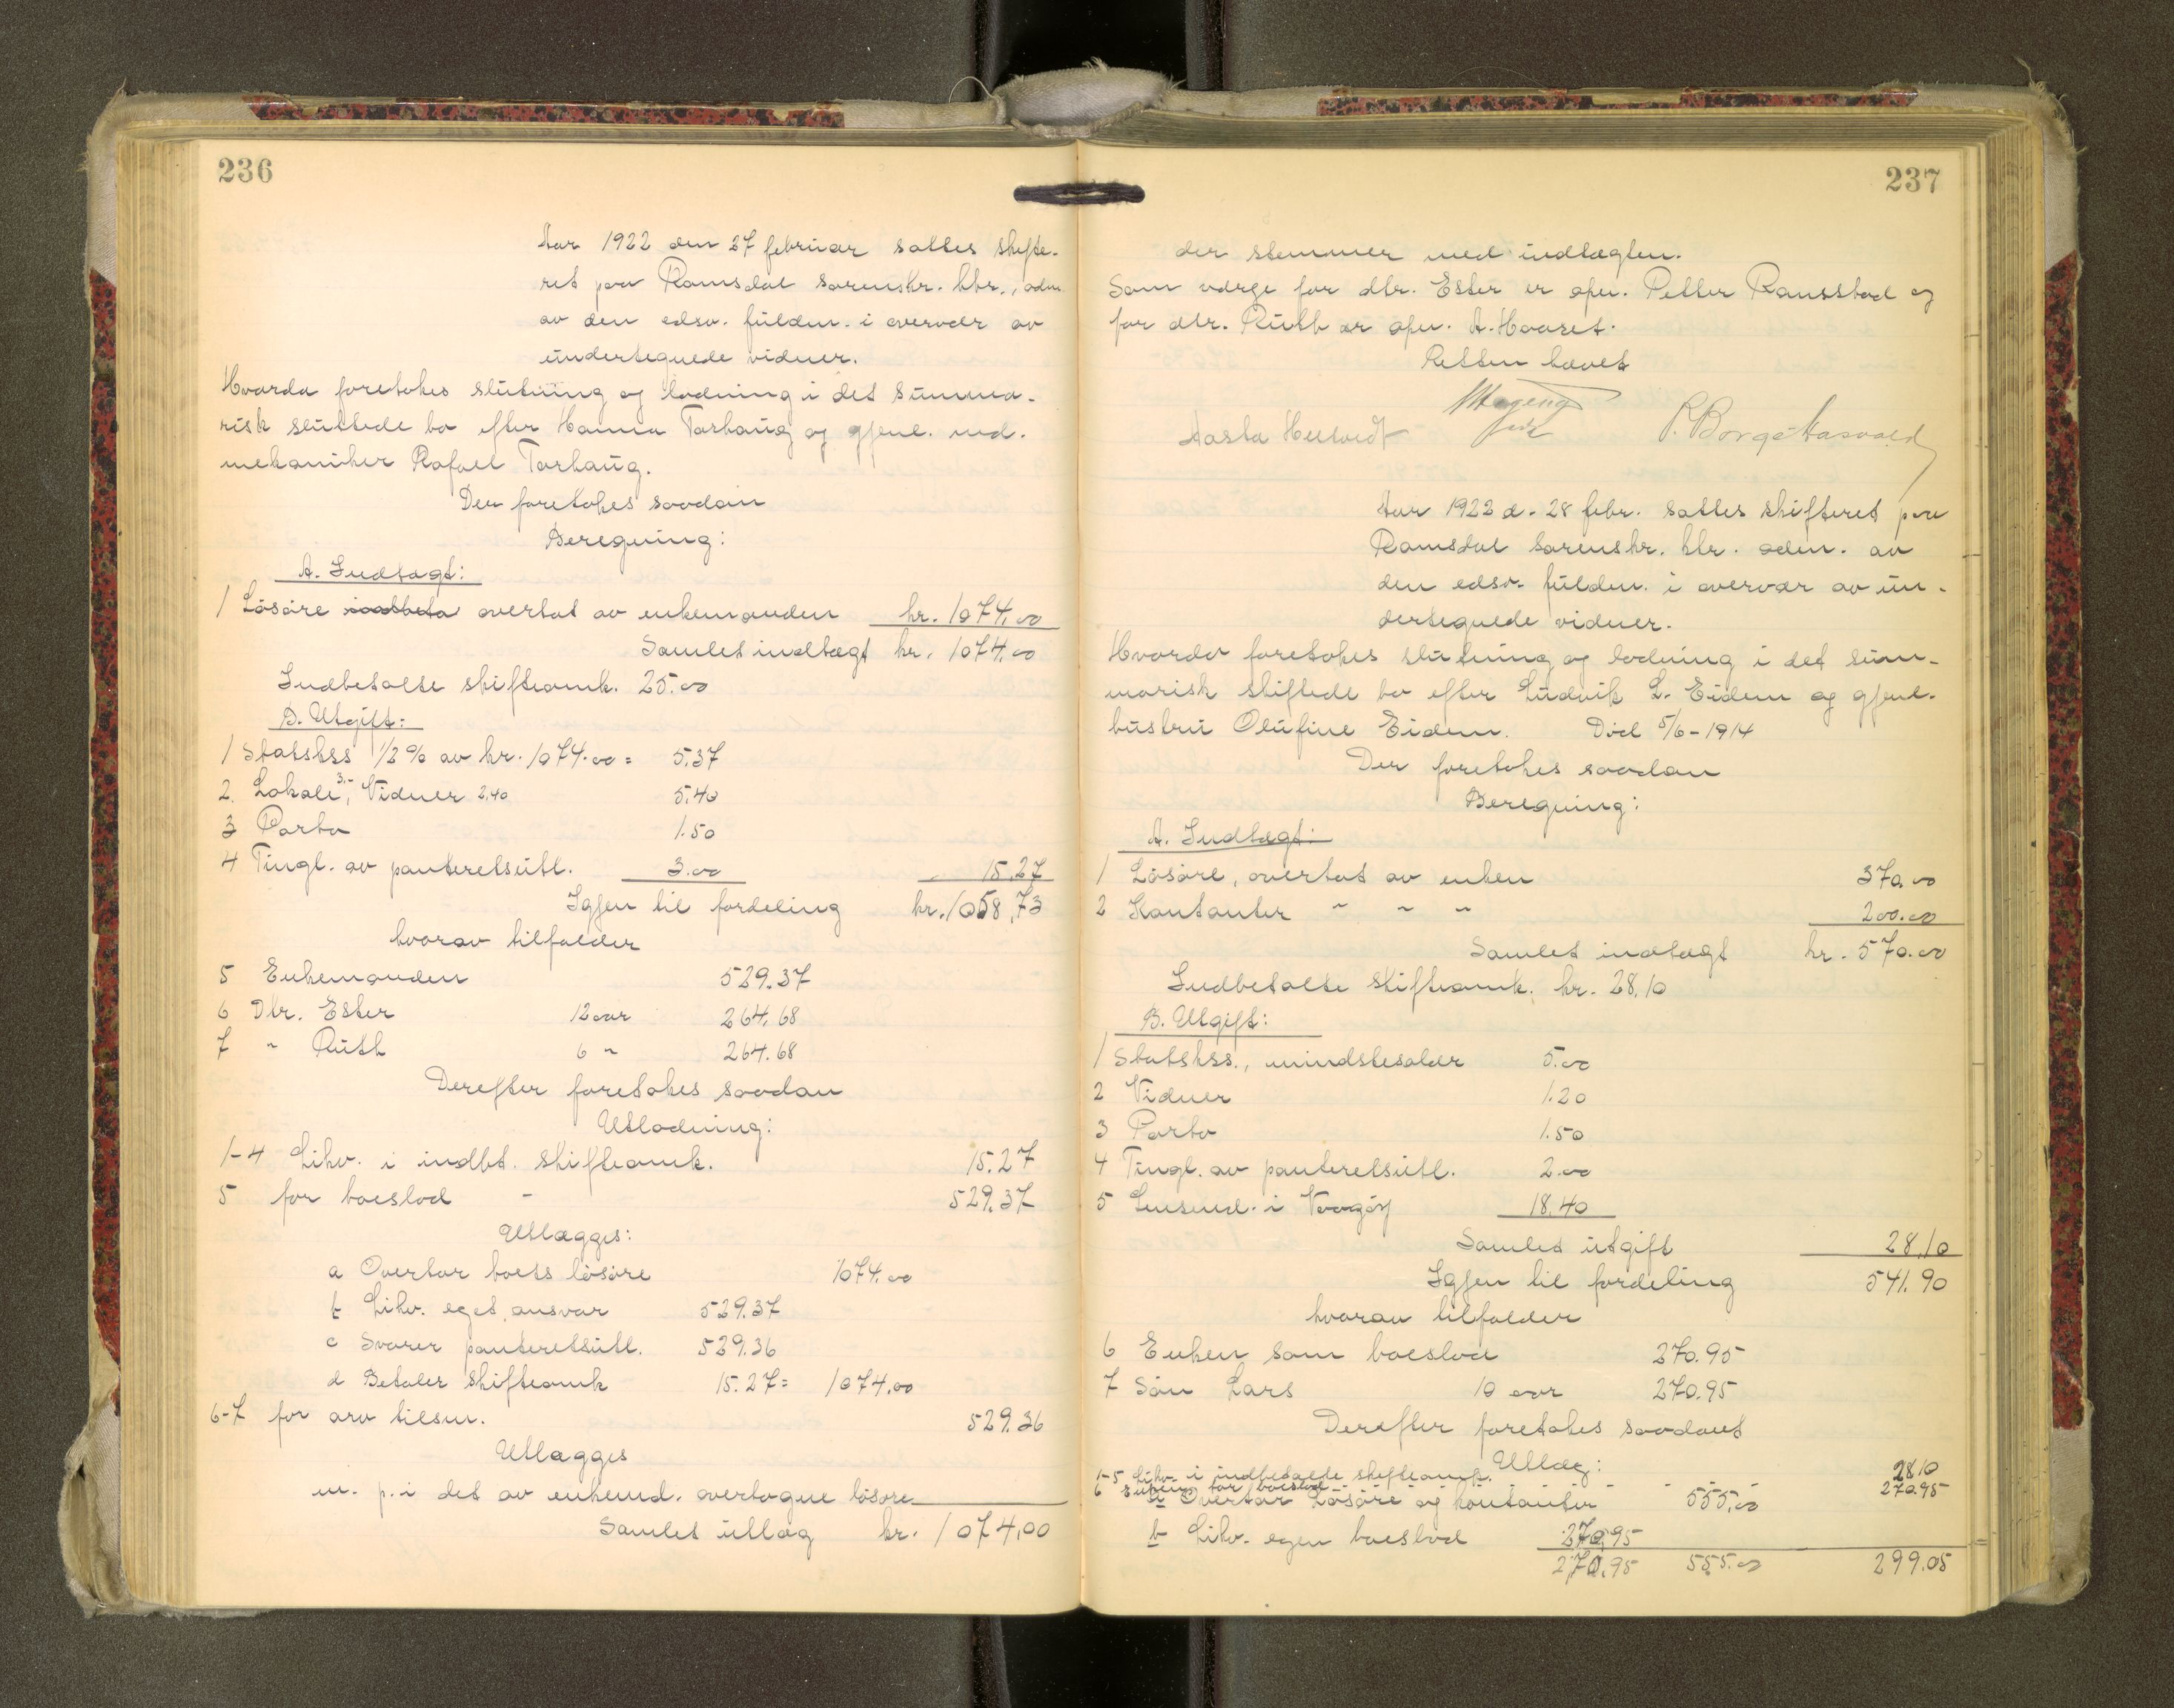 236
Aar 1922 den 27 februar sattes skifte-
ret paa Romsdal sorenskr. ktr., adm
av den edsv. fuldm. i overvær av
undertegnede vidner.
Hvorda foretokes slutning og lodning i det summa-
risk sluttede bo efter Hanna Torhaug og gjenl. md.
mekaniker Rafael Torhaug.
Der foretokes saadan
Beregning:
A. Indtægt:
1 Løsøre overtat av enkemanden kr. 1074.00
Samlet indtægt kr. 1074.00
Indbetalte skifteomk. 25.00
B. Utgift:
1 Statskss 1/2 % av kr. 1074.00 = 5.37
2. Lokale 3,-, Vidner 2.40 5.40
3 Porto 1.50
4 Tingl. av panteretsutl. 3.00 15.27
Igjen til fordeling kr. 1058,73
hvorav tilfalder
5 Enkemanden 529.37
6 Dtr. Ester 12 aar 264.68
7 " Ruth 6 " 264.68
Derefter foretokes saadan
Utlodning:
1-4 Likv. i indbt. skifteomk. 15.27
5 for boeslod - 529.37
Utlægges:
a Overtar boets løsøre 1074.00
b Likv. eget ansvar 529.37
c Svarer panteretsutl. 529.36
d Betaler skifteomk 15.27 = 1074.00
6-7 for arv tilsm. 529.36
Utlægges
m. p. i det av enkemd. overtagne løsøre
Samlet utlæg kr. 1074,00
237
der stemmer med indtægten.
Som værge for dtr. Ester er opn. Petter Ramsstad og
for dtr. Ruth er opn. A. Haaset.
Retten hævet
Aasta Husvedt
Aar 1922 d. 28 febr. sattes skifteret paa
Romsdal sorenskr. ktr. adm. av
den edsv. fuldm. i overvær av un-
dertegnede vidner.
Hvorda foretokes slutning og lodning i det sum-
marisk skiftede bo efter Ludvik L. Eidem og gjenl.
hustru Olufine Eidem. Død 5/6-1914
Der foretokes saadan
Beregning:
A. Indtægt:
1 Løsøre, overtat av enken 370.00
2 Kontanter " " " 200.00
Samlet indtægt kr. 570.00
Indbetalte skifteomk. kr. 28.10
B. Utgift:
1 Statskss., mindstesalær 5.00
2 Vidner 1.20
3 Porto 1.50
4 Tingl. av panteretsutl. 2.00
5 Lensmd. i Vaagøy 18.40
Samlet utgift 28.10
Igjen til fordeling 541.90
hvorav tilfalder
6 Enken som boeslod 270.95
7 Søn Lars 10 aar 270.95
Derefter foretokes saadant
Utlæg:
1-5 Likv. i indbetalte skifteomk. 28.10
6 Enken for boeslod 270.95
a Overtar løsøre og kontanter 555.00
b Likv. egen boeslod 270.95
270.95 555.00 299.05